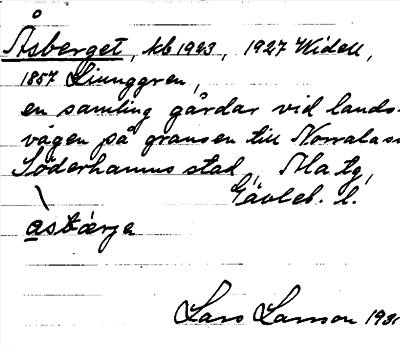 Å
Åsberget, kb 1923, 1927 Widell,
1857 Ljunggren,
en samling gårdar vid lands-
vägen på gränsen till Norrala sn
Söderhamns stad, Ala tg,
Gävleb. l.
åsbärje
Lars Larson 193